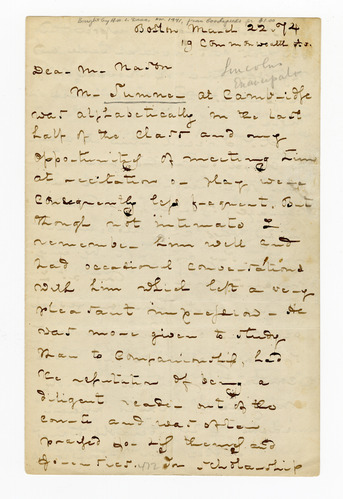 Boston March 22. 74
19 Commonwealth Av.
Lincolns
Emancipator
Dear Mr Mason
Mr Sumner at Cambridge
was alphabetically in the last
half of the Class and my
opportunities of meeting him
at recitation or play were
consequently less frequent. But
though not intimate I
remember him well and
had occasional conversations
with him which left a very
pleasant impression. He
was more given to study
than to Companionship, had
the reputation of being a
diligent reader out of the
course and was often
praised for themes and
forensics. In scholarship